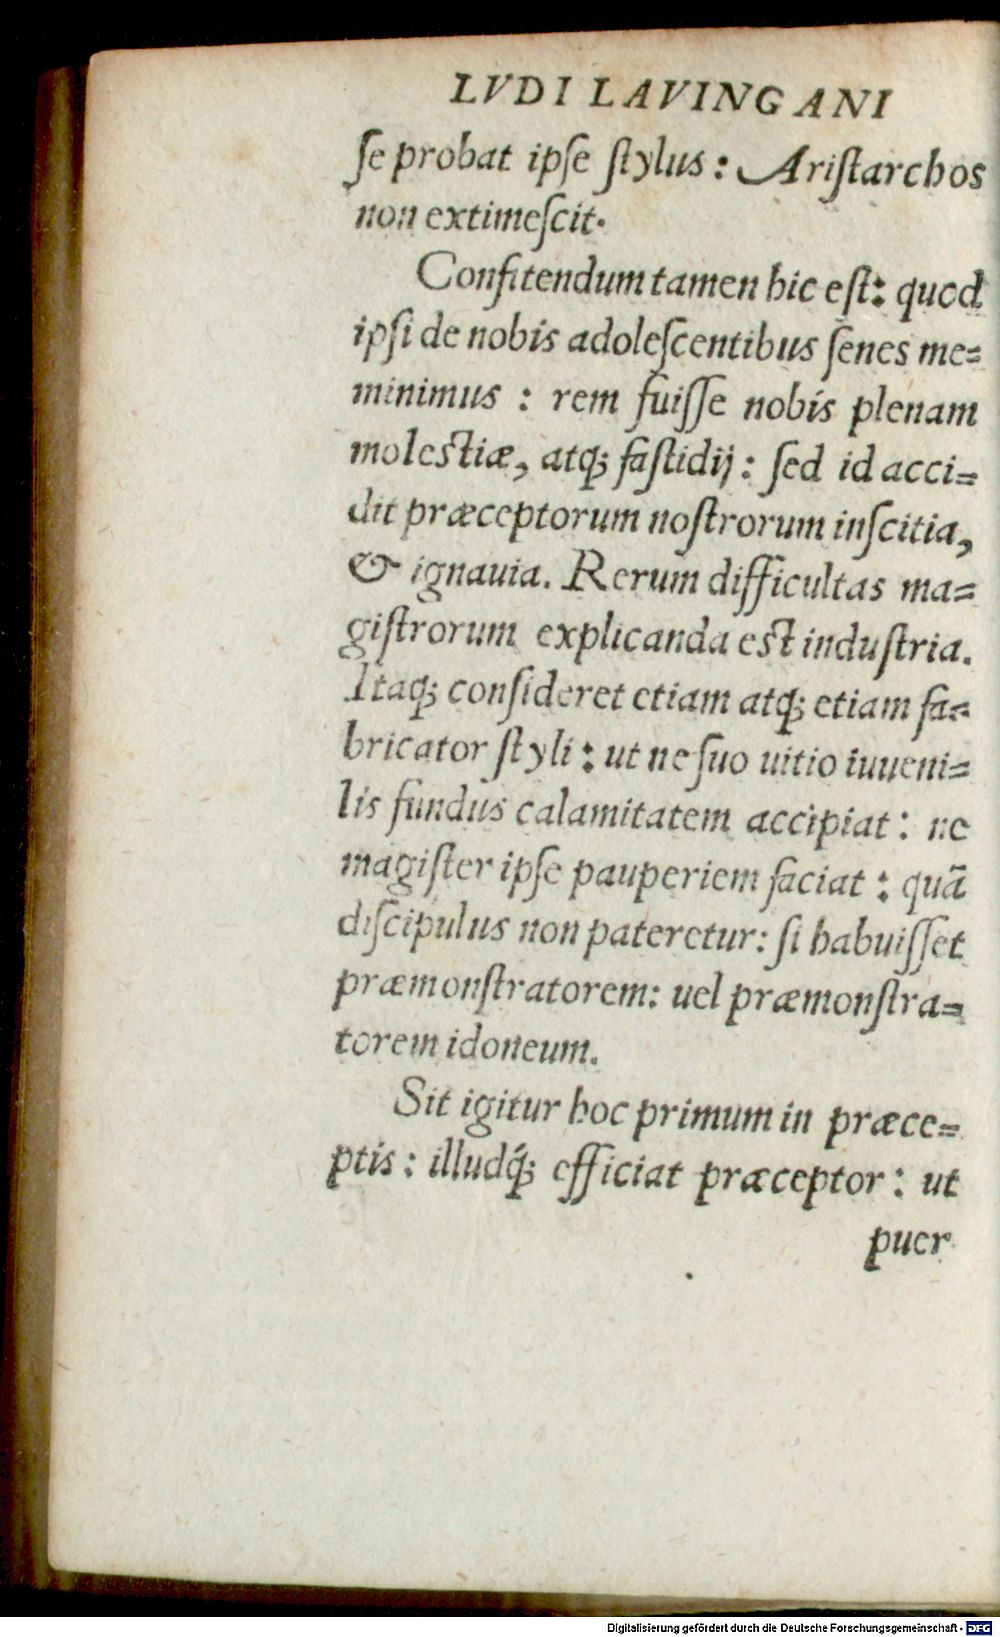 LVDI LAVINGANI
ſe probat ipſe ſtylus: Ariſtarchos
non extimeſcit.
Confitendum tamen hic eſt: quod
ipſi de nobis adoleſcentibus ſenes me=
minimus : rem fuiſſe nobis plenam
moleſtiæ, atq; faſtidij: ſed id acci=
dit præceptorum noſtrorum inſcitia,
& ignauia. Rerum difficultas ma=
giſtrorum explicanda eſt induſtria.
Itaq; conſideret etiam atq; etiam fa=
bricator ſtyli: ut ne ſuo uitio iuueni=
lis fundus calamitatem accipiat: ne
magiſter ipſe pauperiem faciat: quã
diſcipulus non pateretur: ſi habuiſſet
præmonſtratorem: uel præmonſtra=
torem idoneum.
Sit igitur hoc primum in præce=
ptis: illudq́; efficiat præceptor: ut
puer
Digitalisierung gefördert durch die Deutsche Forschungsgemeinschaft - DFG